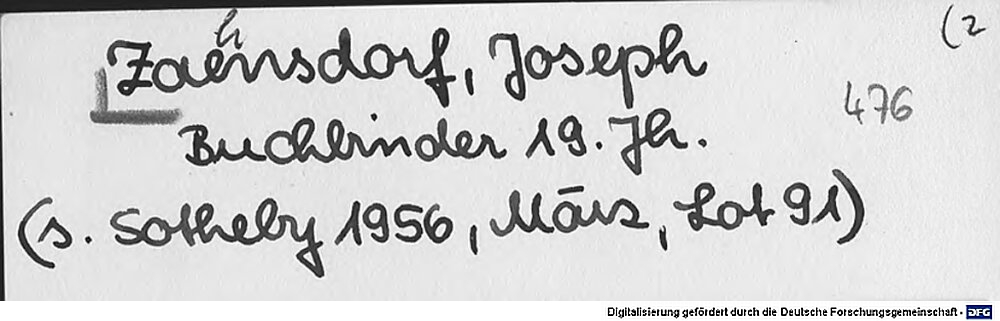 (2
Zaehnsdorf, Joseph
476
Buchbinder 19. Jh.
(s. Sotheby 1956, März, Lot 91)
Digitalisierung gefördert durch die Deutsche Forschungsgemeinschaft - DFG